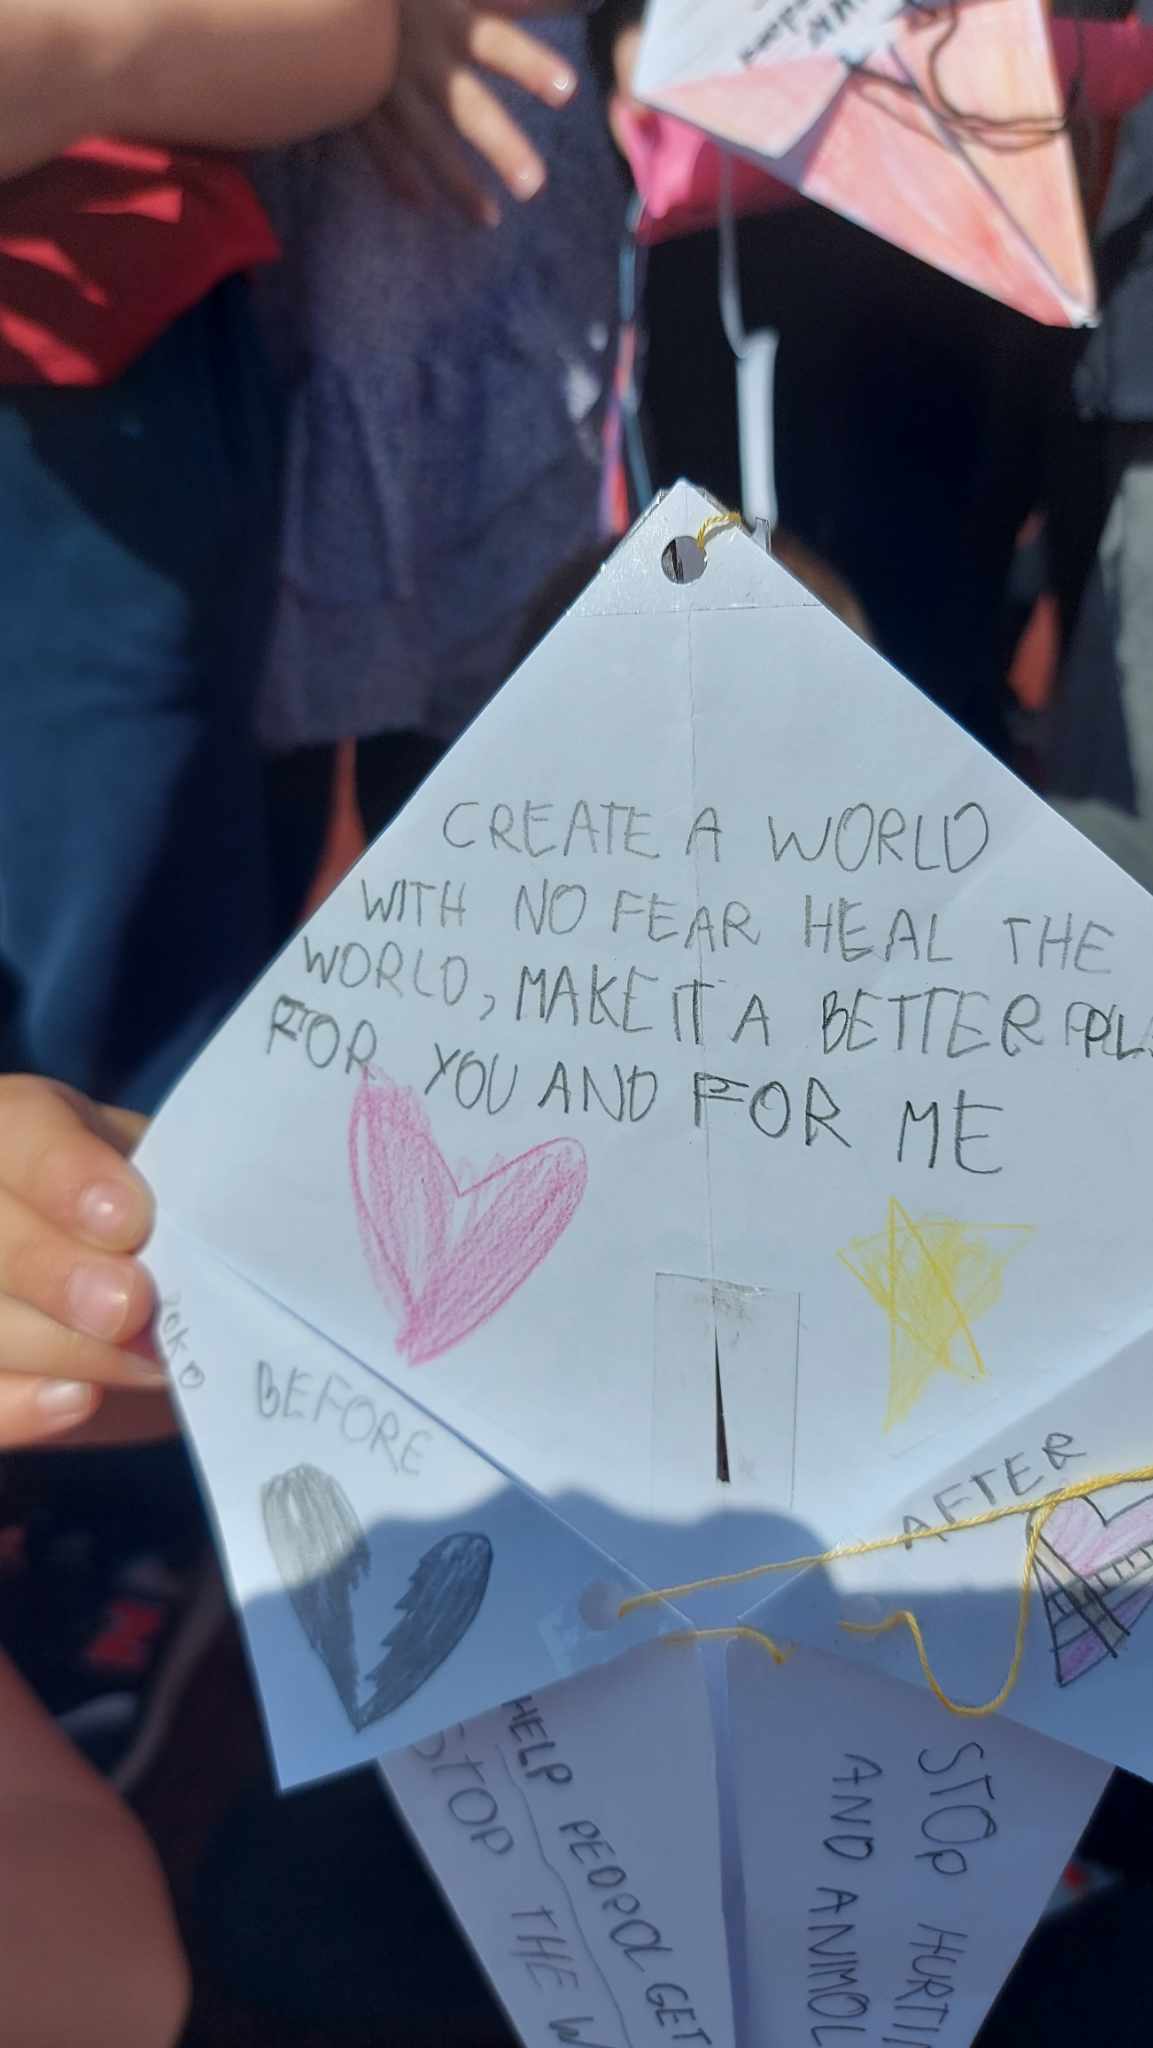 CREATE A WORLD
WITH NO FEAR HEAL THE
WORLD, MAKE IT A BETTER
FOR YOU AND FOR ME
BEFORE
AFTER
HELP PEOPOL GET
STOP THE
STOP
AND ANIMOL